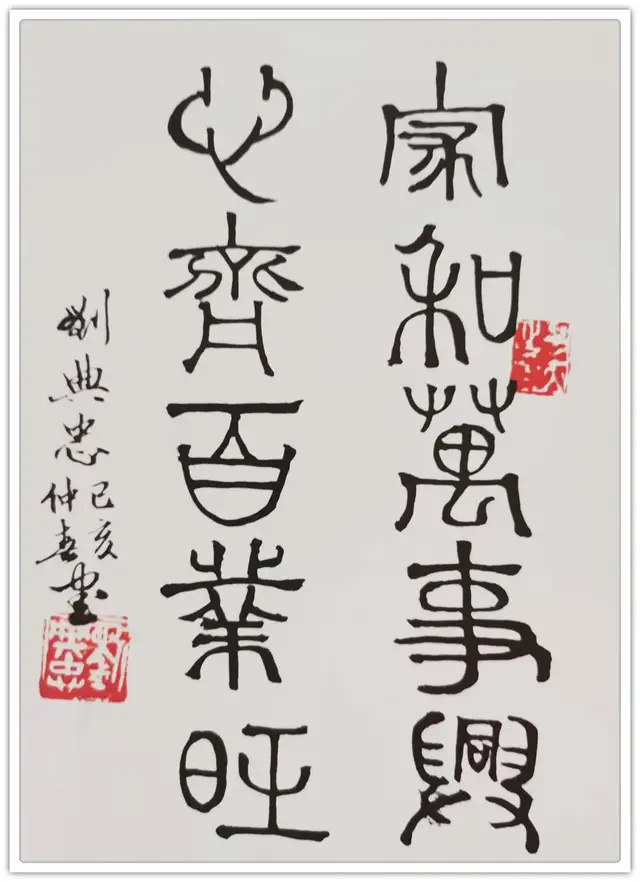 家和萬事興
心齊百業旺
劉典忠
己亥
仲春書